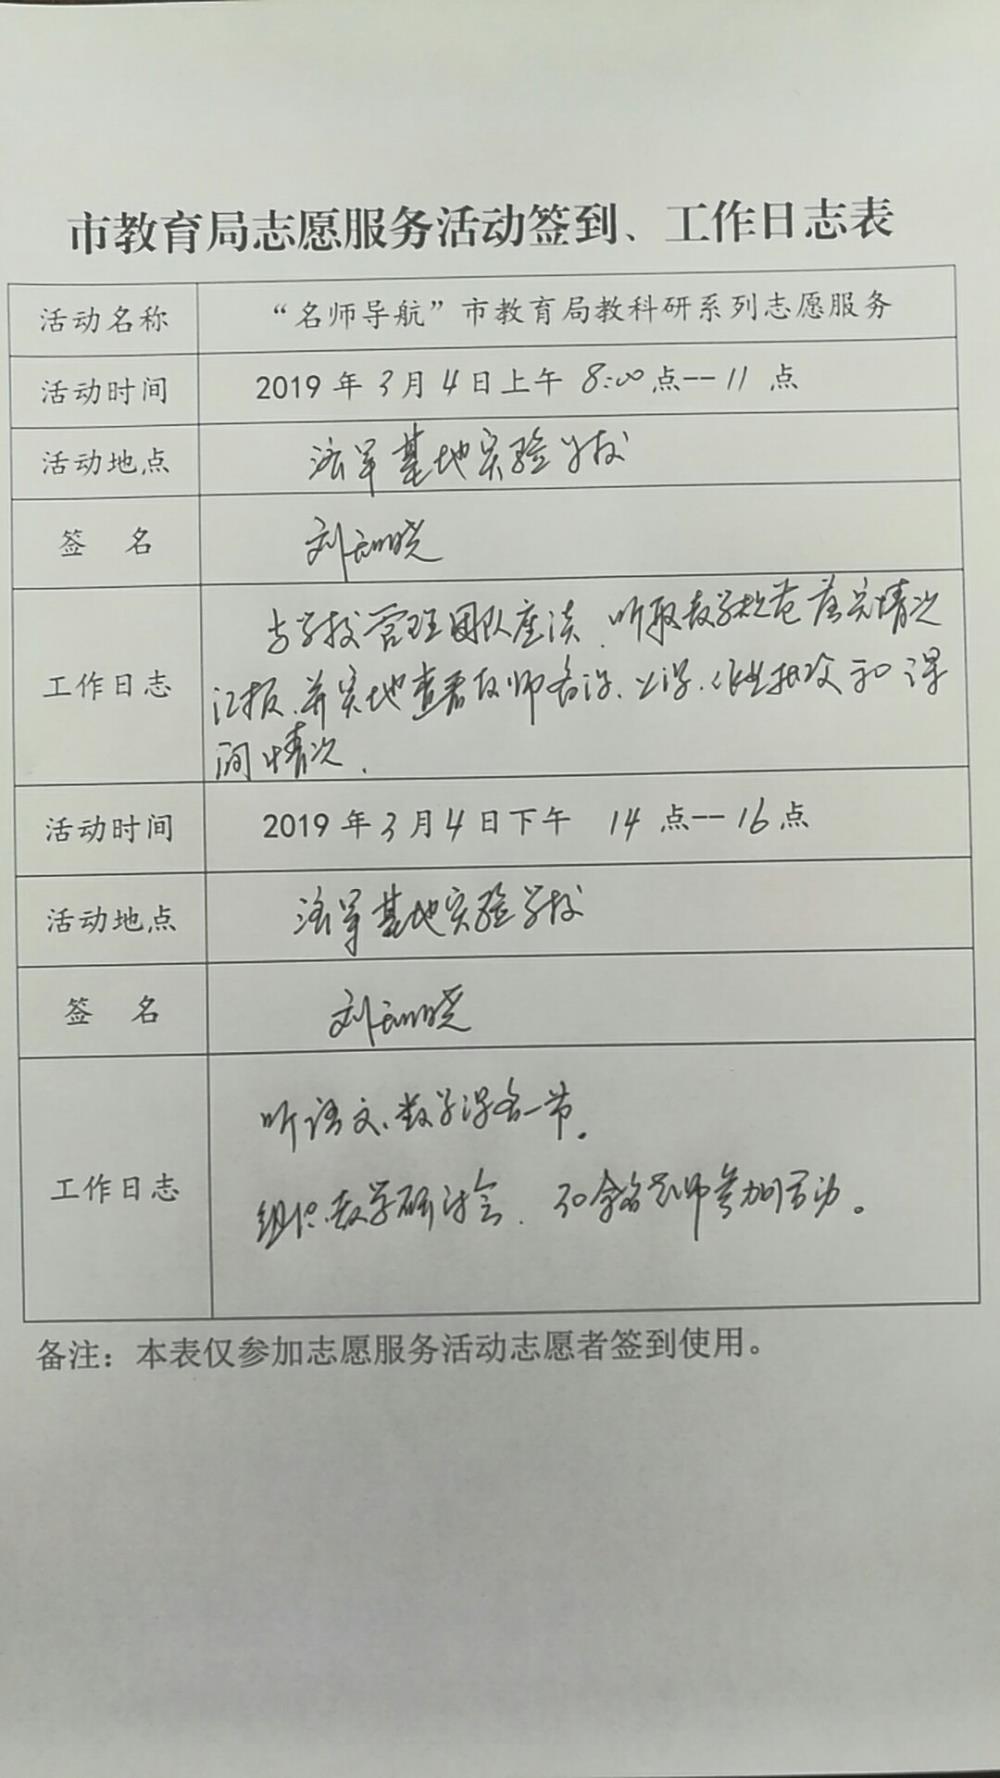 市教育局志愿服务活动签到、工作日志表
活动名称 “名师导航”市教育局教科研系列志愿服务
活动时间 2019年3月4日上午8:00点--11点
活动地点 海军基地实验学校
签 名 刘晓
工作日志 与学校管理团队座谈、听取教学规范落实情况
汇报、并实地查看教师备课、上课、作业批改和课
间情况.
活动时间 2019年3月4日下午 14点--16点
活动地点 海军基地实验学校
签 名 刘晓
工作日志 听语文、数学课各一节。
组织数学研讨会、30余名老师参加活动。
备注：本表仅参加志愿服务活动志愿者签到使用。